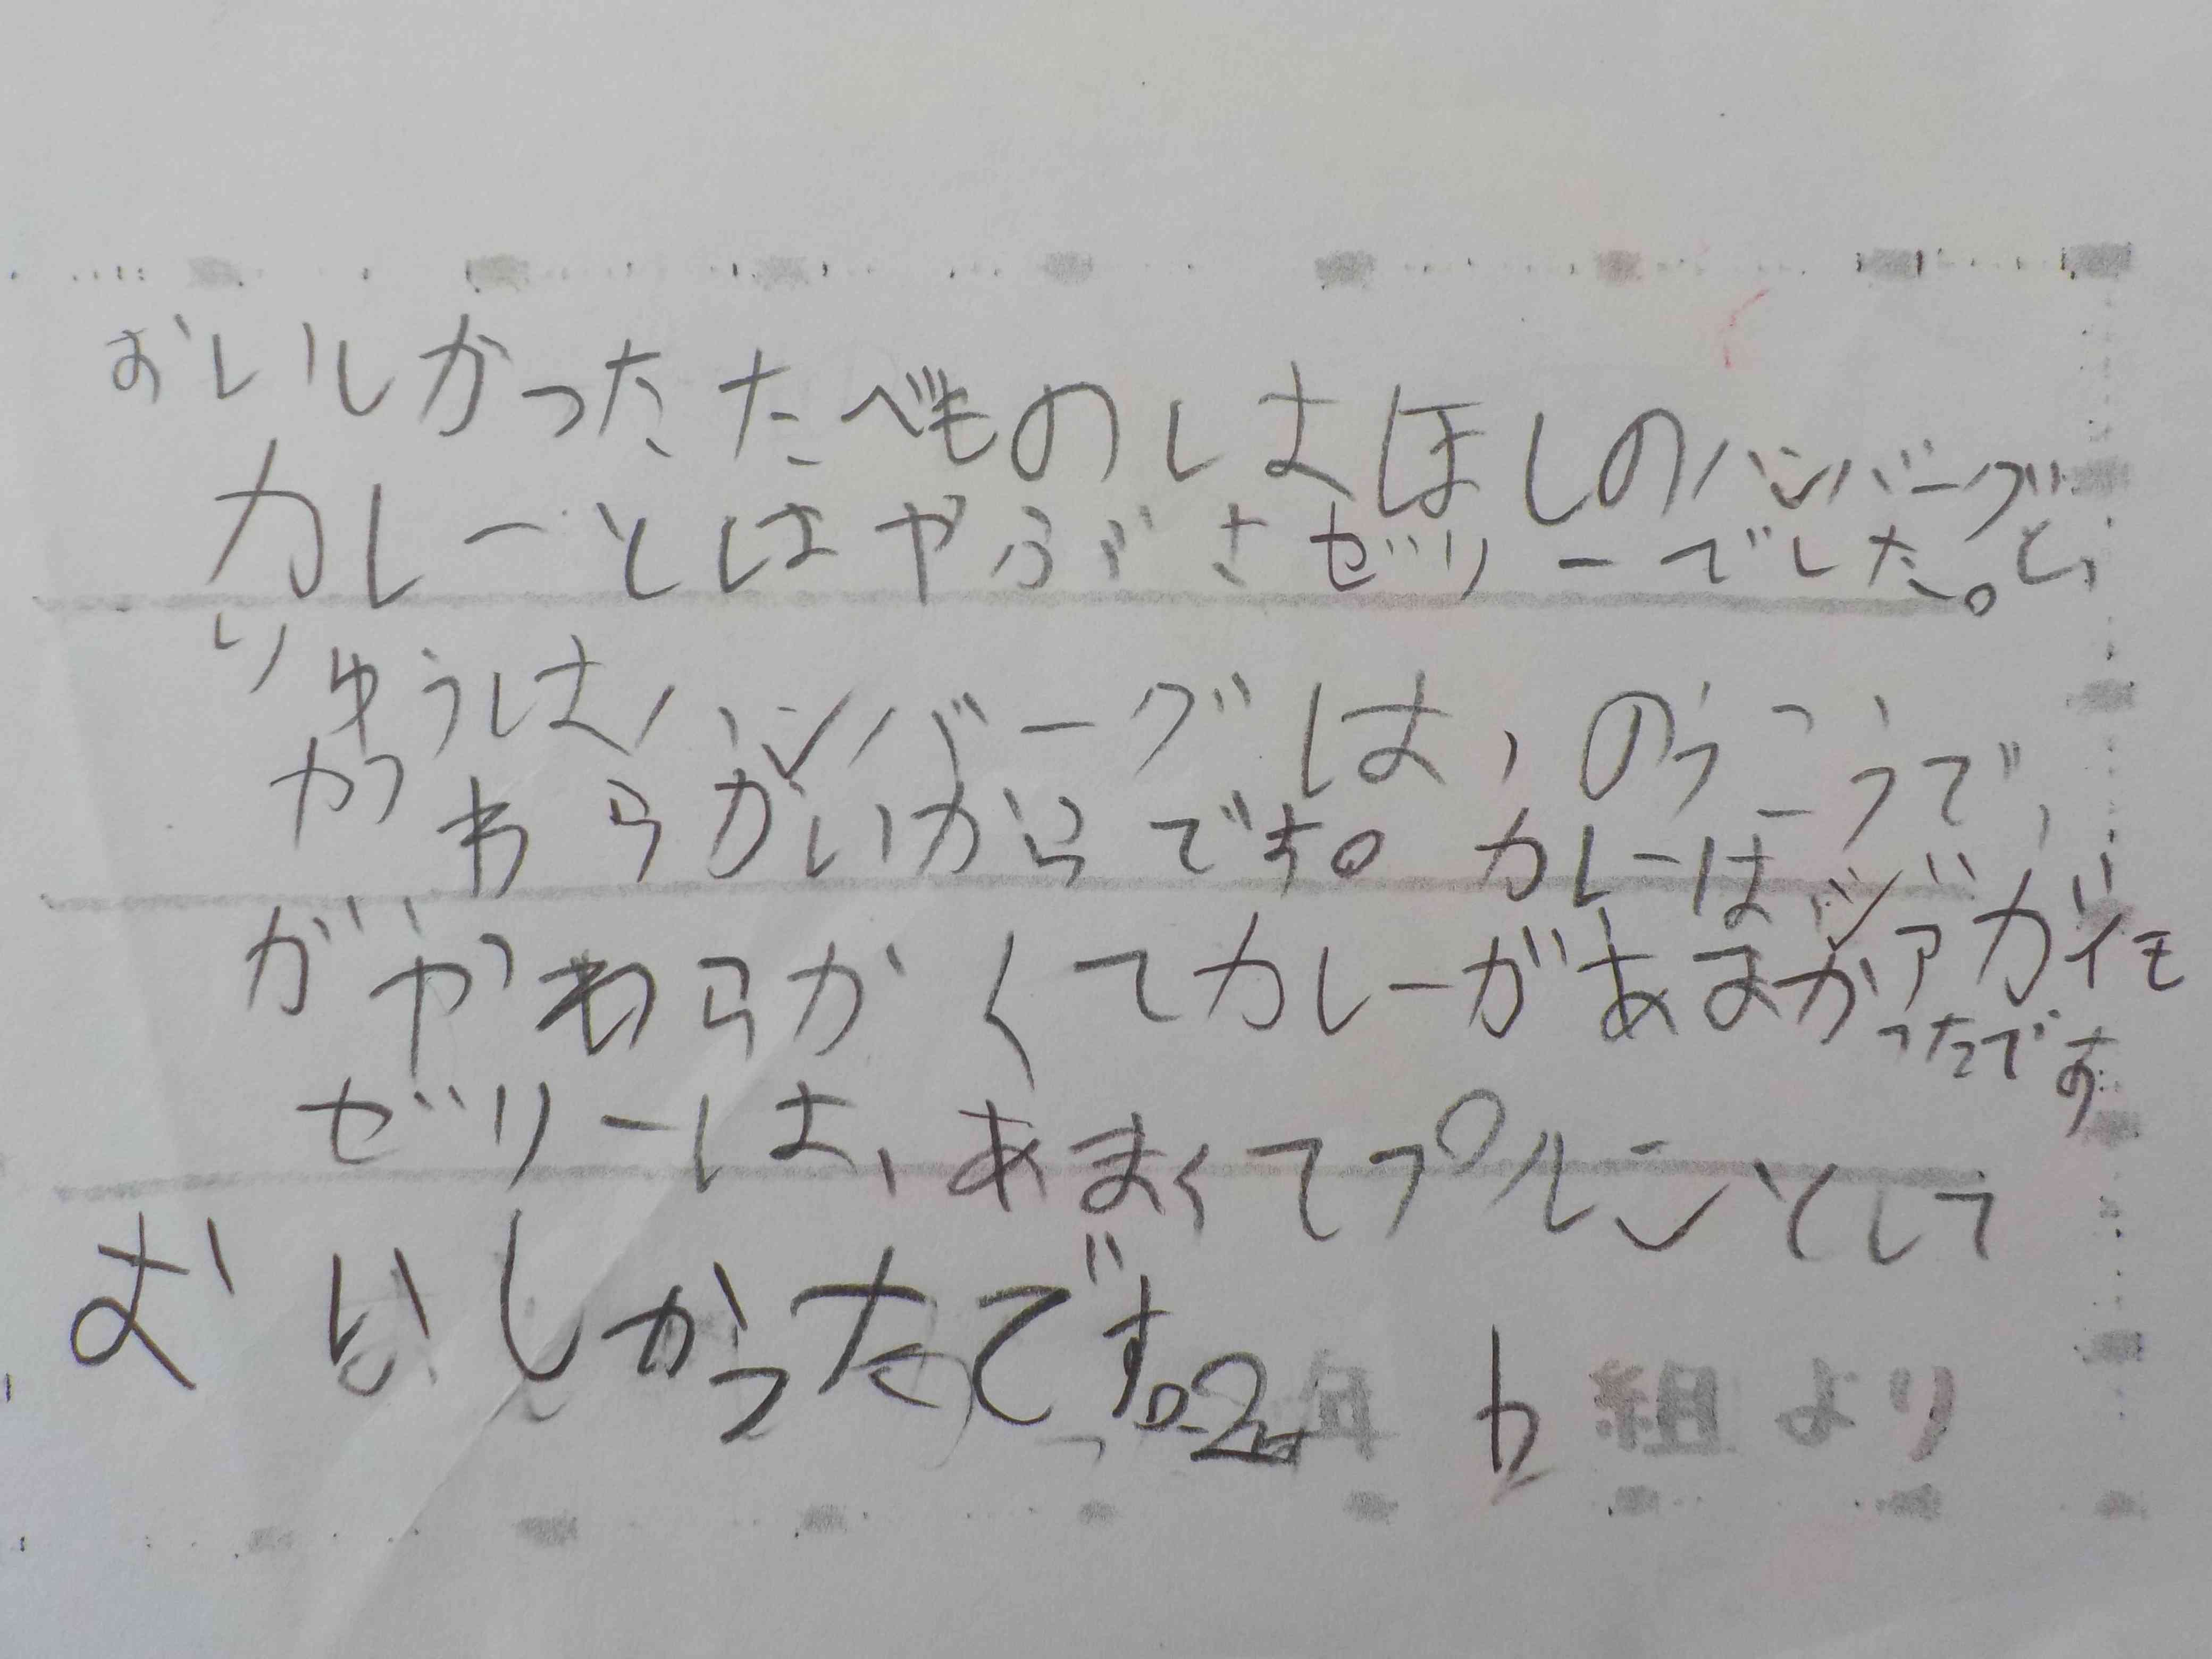 おいしかったたべものはほしのハンバーグと、
カレーとはやぶさゼリーでした。
りゆうはハンバーグは、のうこうで、
やわらかいからです。カレーはジァガイモ
がやわらかくてカレーがあまかったです
ゼリーは、あまくてプルンとして
おいしかったです。2年 組より